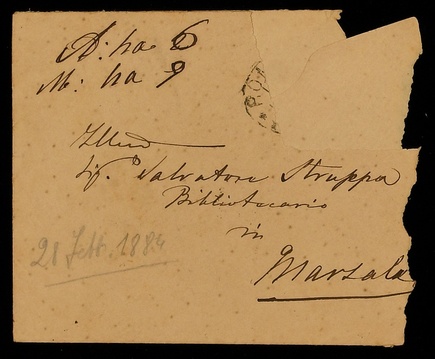 A: ha 6
M: ha 9
ROM
Illmo
Sig. Salvatore Struppa
Bibliotecario
in
Marsala
21 Sett. 1884